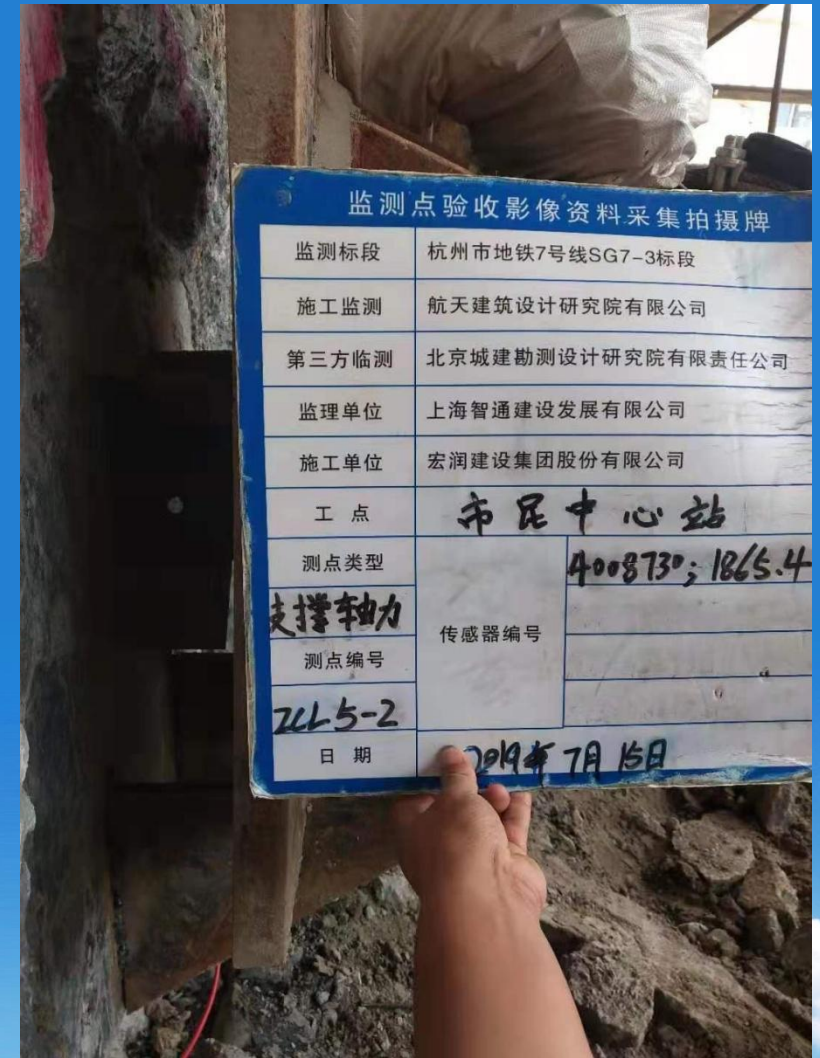 监测点验收影像资料采集拍摄牌
监测标段 杭州市地铁7号线SG7-3标段
施工监测 航天建筑设计研究院有限公司
第三方临测 北京城建勘测设计研究院有限责任公司
监理单位 上海智通建设发展有限公司
施工单位 宏润建设集团股份有限公司
工 点 市民中心站
测点类型 4008730; 1865.4
支撑轴力 传感器编号
测点编号
ZCL5-2
日 期 2019年7月15日